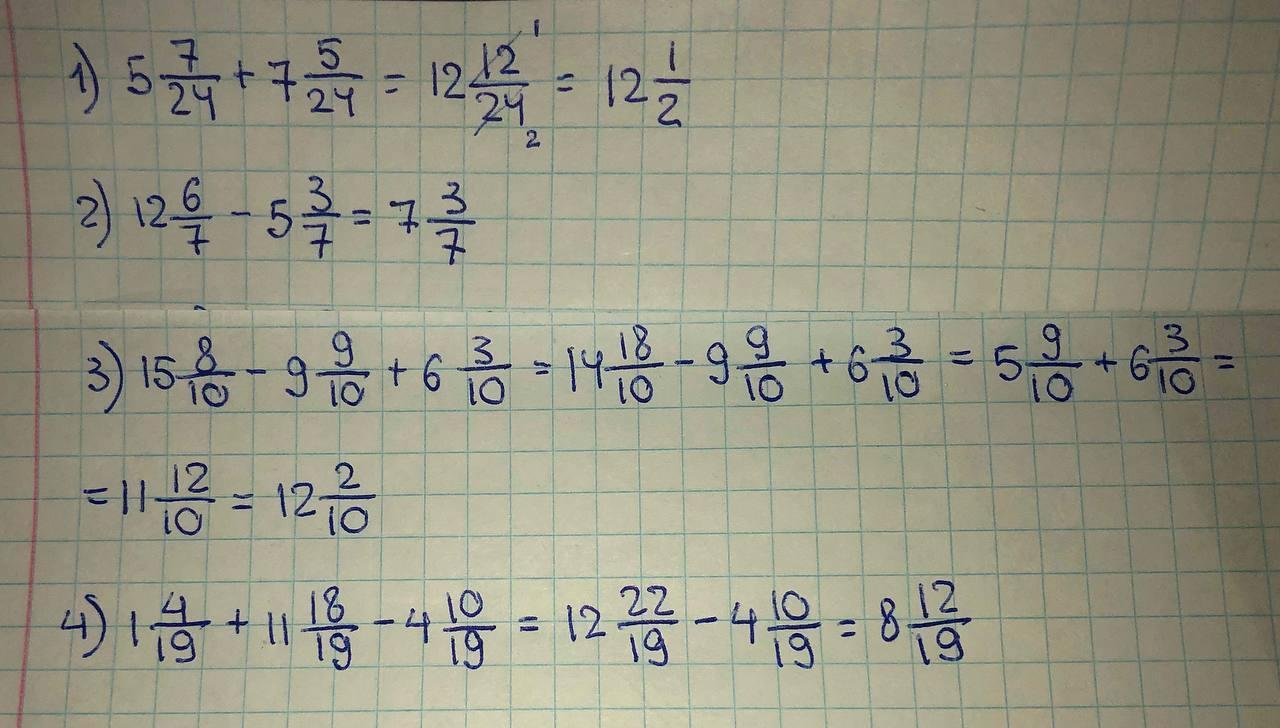 1) 5 7/24 + 7 5/24 = 12 12/24 1 2 = 12 1/2
2) 12 6/7 - 5 3/7 = 7 3/7
3) 15 8/10 - 9 9/10 + 6 3/10 = 14 18/10 - 9 9/10 + 6 3/10 = 5 9/10 + 6 3/10 =
= 11 12/10 = 12 2/10
4) 1 4/19 + 11 18/19 - 4 10/19 = 12 22/19 - 4 10/19 = 8 12/19